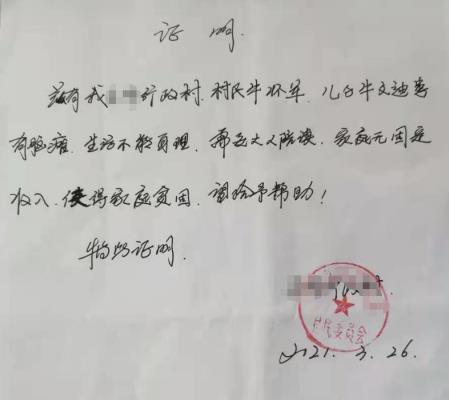 证明.
兹有我行政村.村民牛怀军.儿子牛文迪患
有脑瘫.生活不能自理.需要大人陪读.家庭无固定
收入.使得家庭贫困.请给予帮助!
特此证明.
村民委员会
2021.3.26.